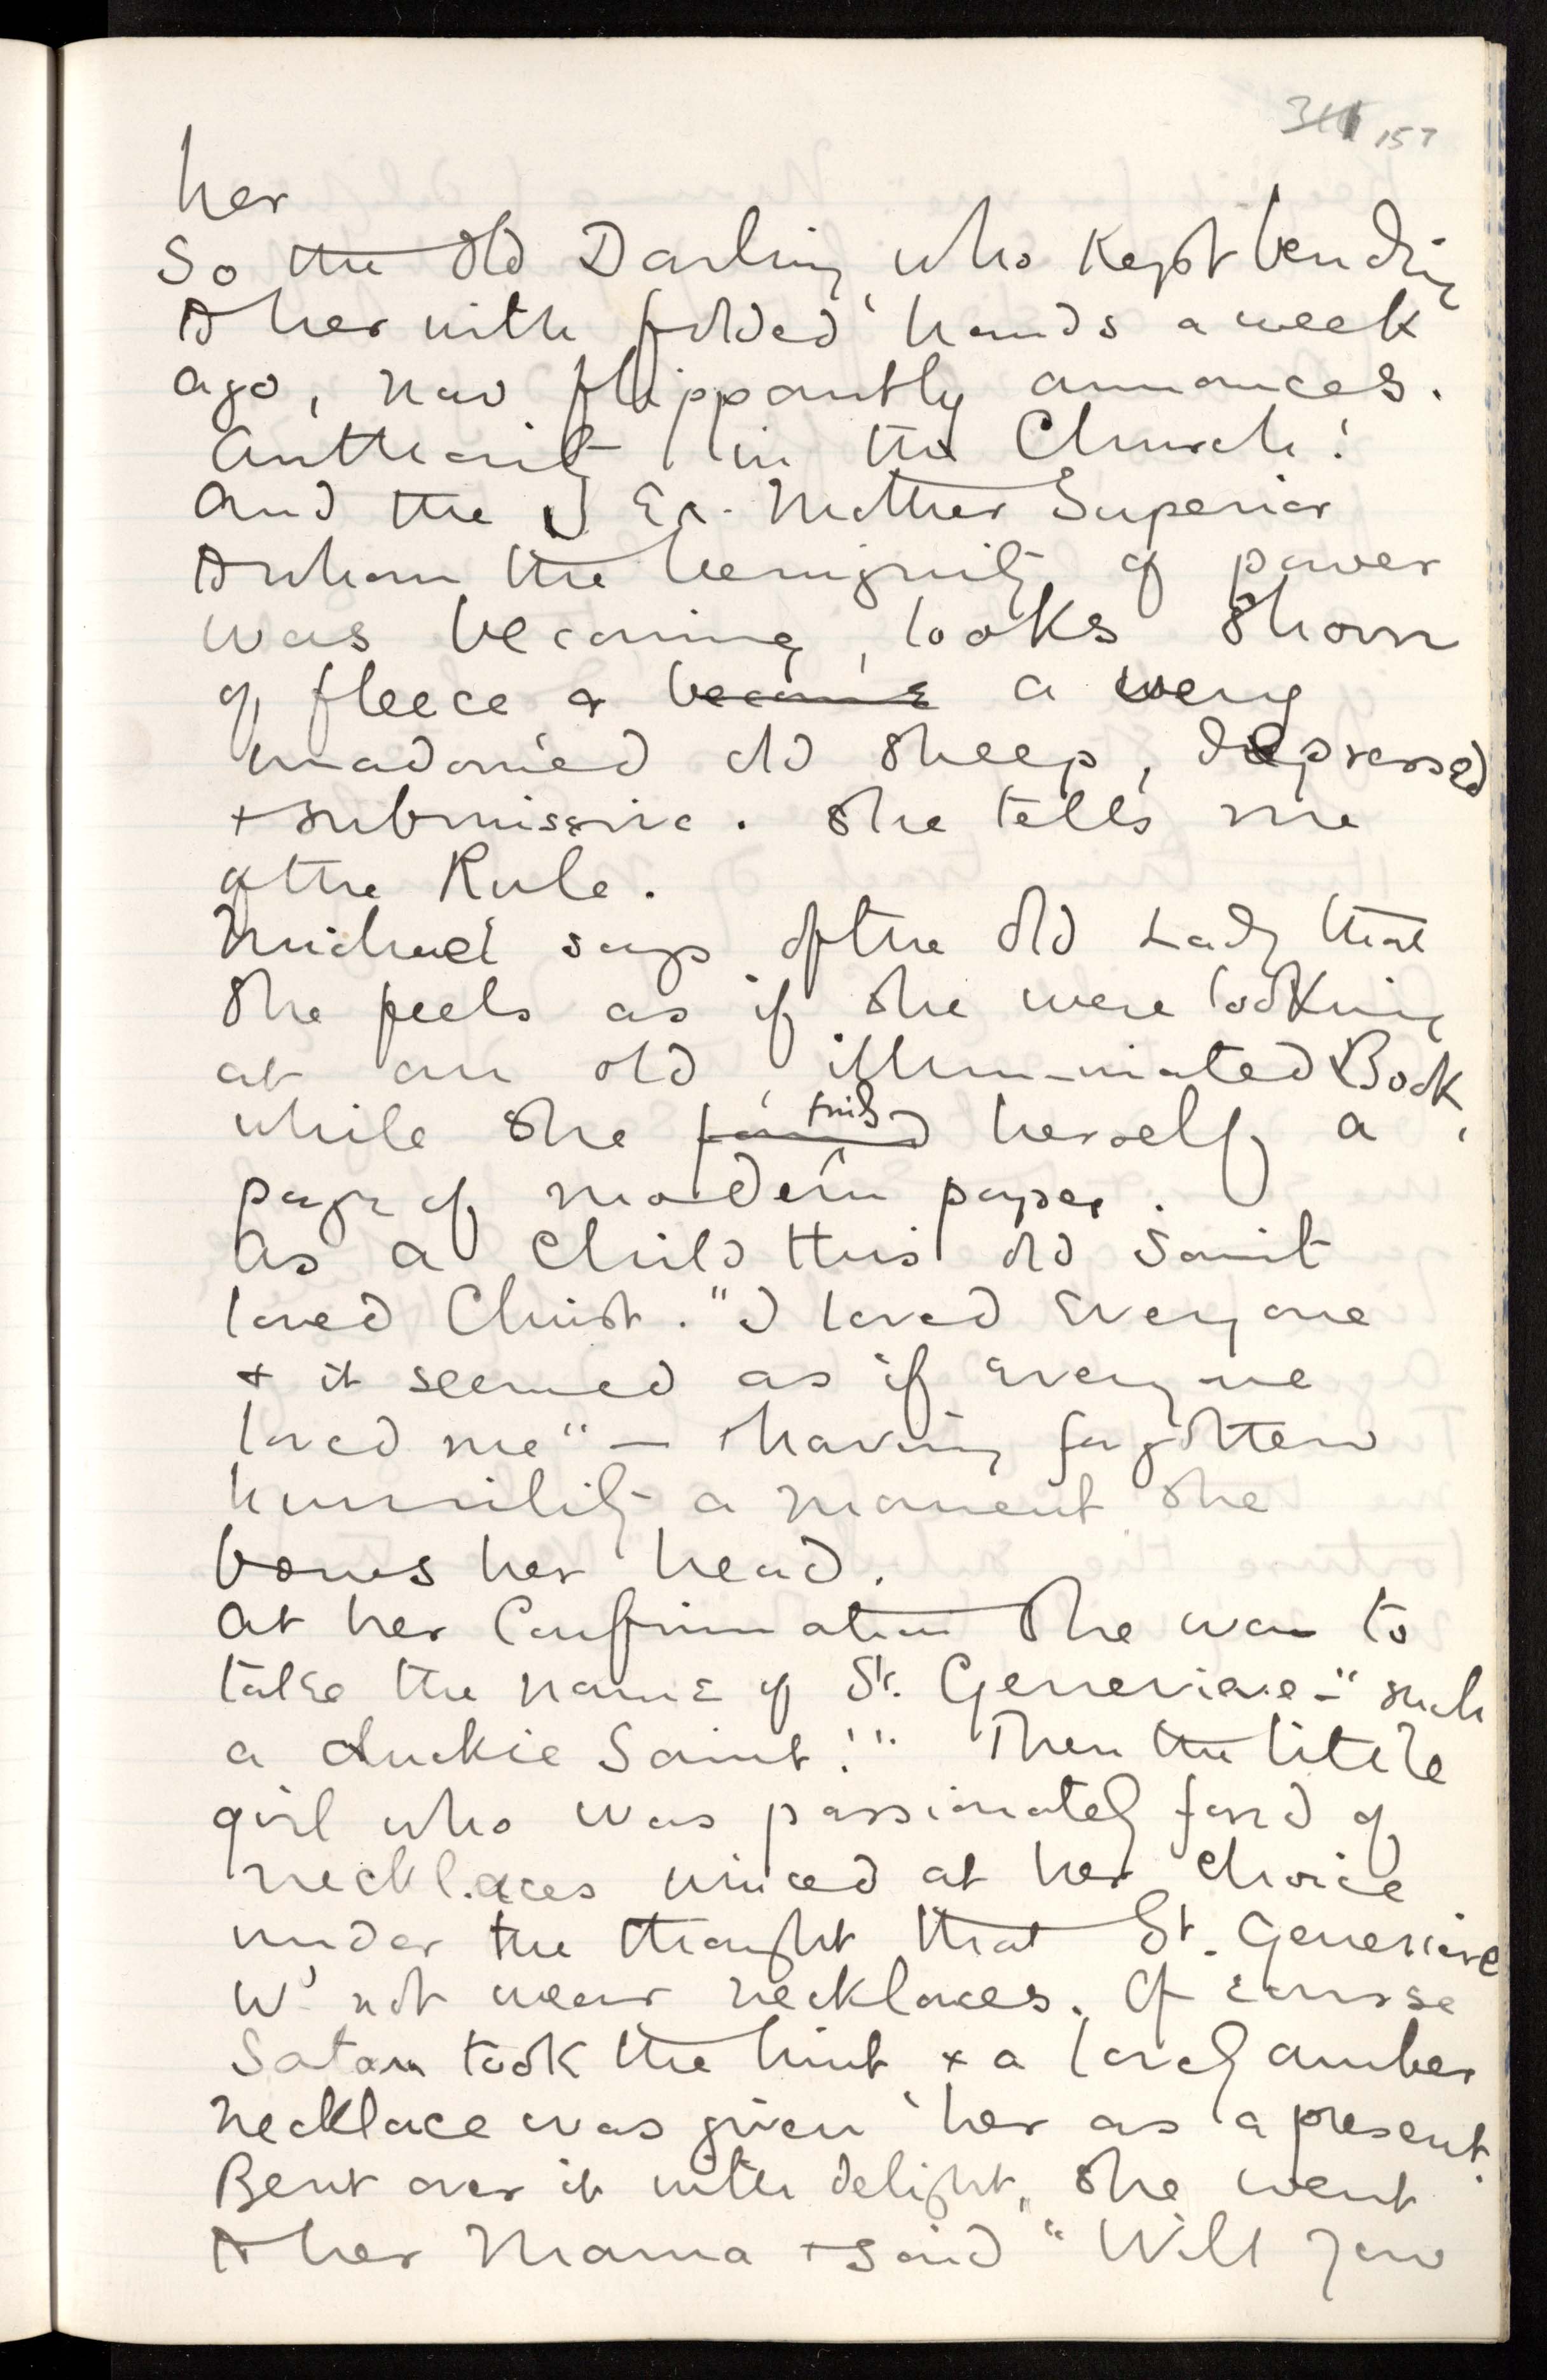 157
her
So the old Darling, who Kept bending
to her with folded hands a week
ago, now flippantly announces.
Authority in the Church!
And the Ex-Mother Superior
to whom the benignity of power
was becoming, looks shorn
of fleece & became a very
unadorned old sheep, depressed
& submissive. She tells me
of the Rule.
Michael says of the old Lady that
she feels as if she were looking
at an old, illum-inated Book,
while she found finds herself a
page of modern paper.
As a child this old Saint
loved Christ. "I loved Everyone
& it seemed as if Everyone
loved me" — & having forgotten
humility a moment she
bows her head.
At her Confirmation she was to
take the name of St. Genevieve - "such
a duckie Saint!" Then the little
girl who was passionately fond of
necklaces winced at her choice
under the thought that St. Genevieve
wd not wear necklaces. Of course
Satan took the hint & a lovely amber
necklace was given her as a present.
Bent over it with delight, she went
to her Mama & said "Will you